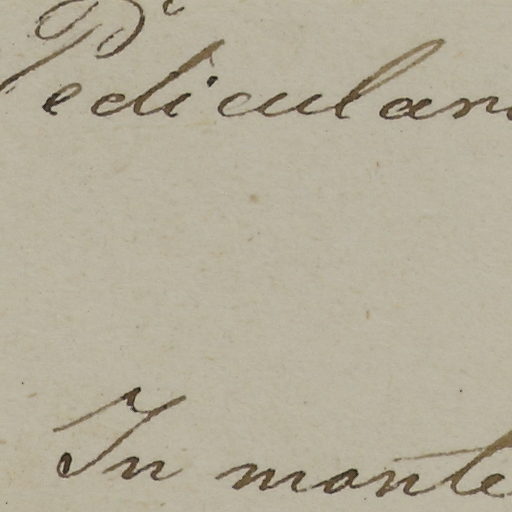 Pedicular
In monte